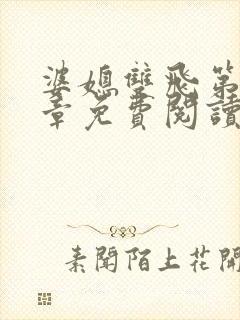 婆媳雙飛第
章免費閱讀
素聞陌上花開